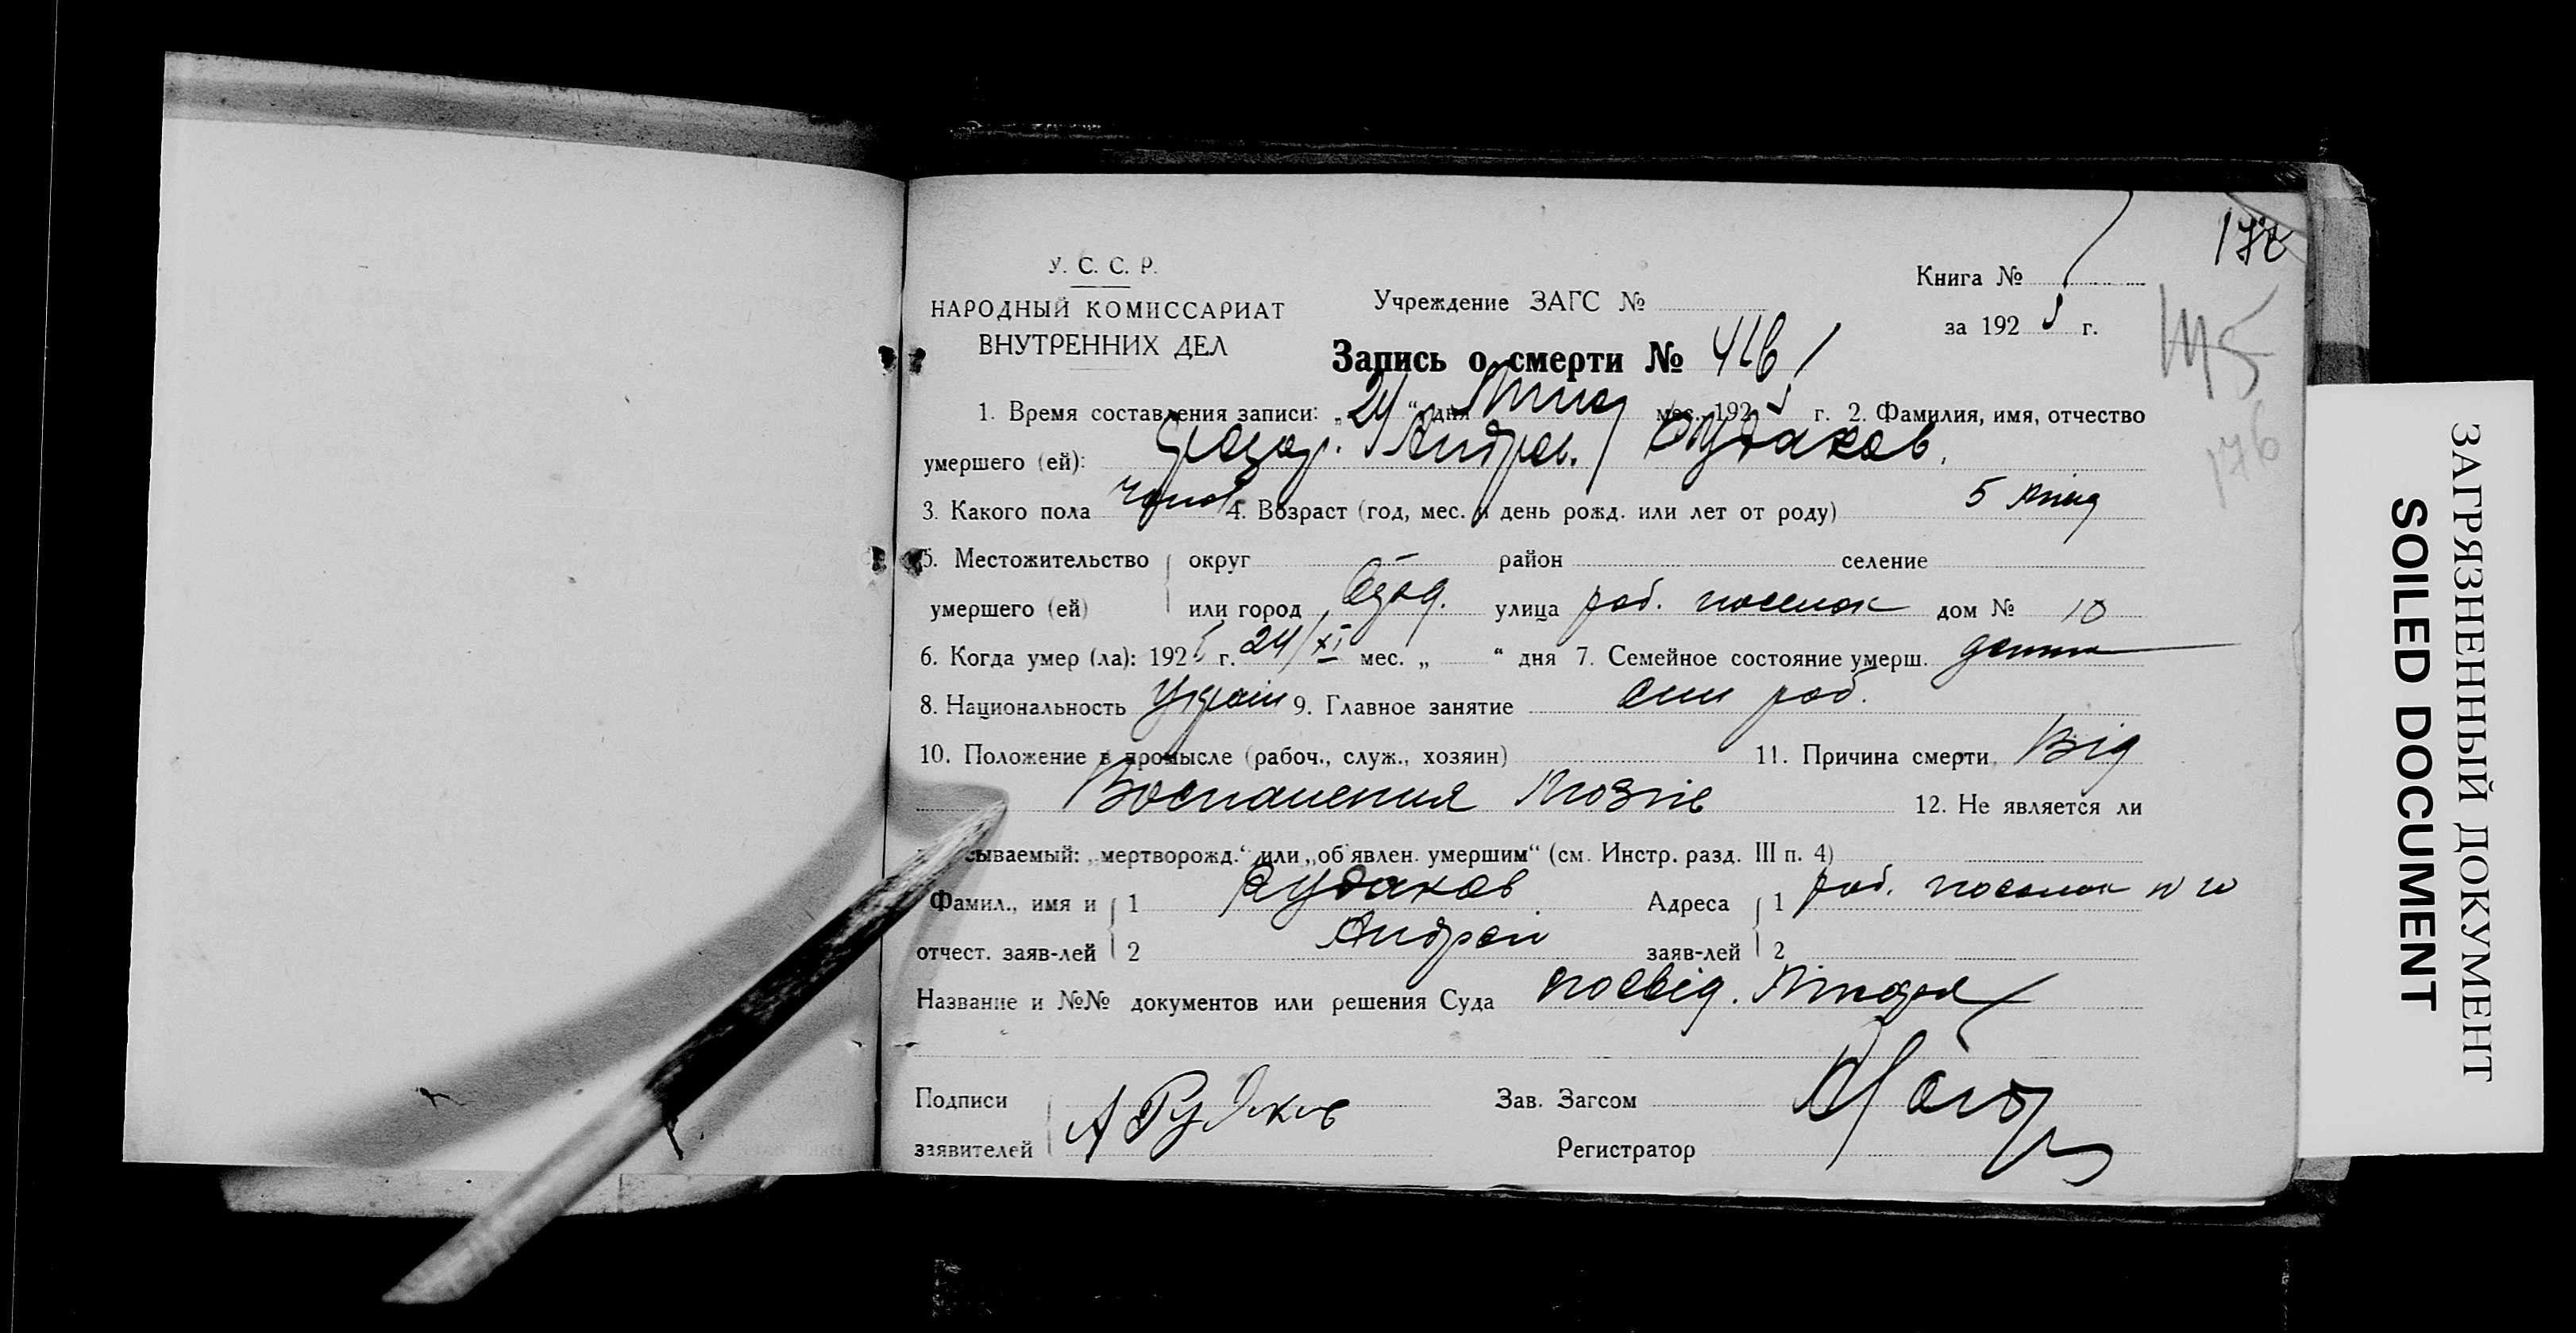 172
У. С. С. Р.
НАРОДНЫЙ КОМИССАРИАТ
ВНУТРЕННИХ ДЕЛ
Учреждение ЗАГС №
Книга №
за 192 5 г.
Запись о смерти №
1. Время составления записи: „ 24 “ дня мес. 192 5 г. 2. Фамилия, имя, отчество
умершего (ей): Андрев. Рудаков.
3. Какого пола чолов 4. Возраст (год, мес. и день рожд. или лет от роду) 5 міся
5. Местожительство округ район селение
умершего (ей) или город улица роб. поселок дом № 10
6. Когда умер (ла): 192 5 г. 24/XI мес. „ “ дня 7. Семейное состояние умерш. дитина
8. Национальность Україн 9. Главное занятие син роб.
10. Положение в промысле (рабоч., служ., хозяин) 11. Причина смерти Від
Воспаления Мозгів 12. Не является ли
сываемый: „мертворожд.“ или „об'явлен. умершим“ (см. Инстр. разд. III п. 4)
Фамил., имя и 1 Рудаков Адреса 1 роб. поселок N 10
отчест. заяв-лей 2 Андрей заяв-лей 2
Название и №№ документов или решения Суда посвід.
Подписи А Рудаков Зав. Загсом
заявителей Регистратор
176
ЗАГРЯЗНЕННЫЙ ДОКУМЕНТ
SOILED DOCUMENT